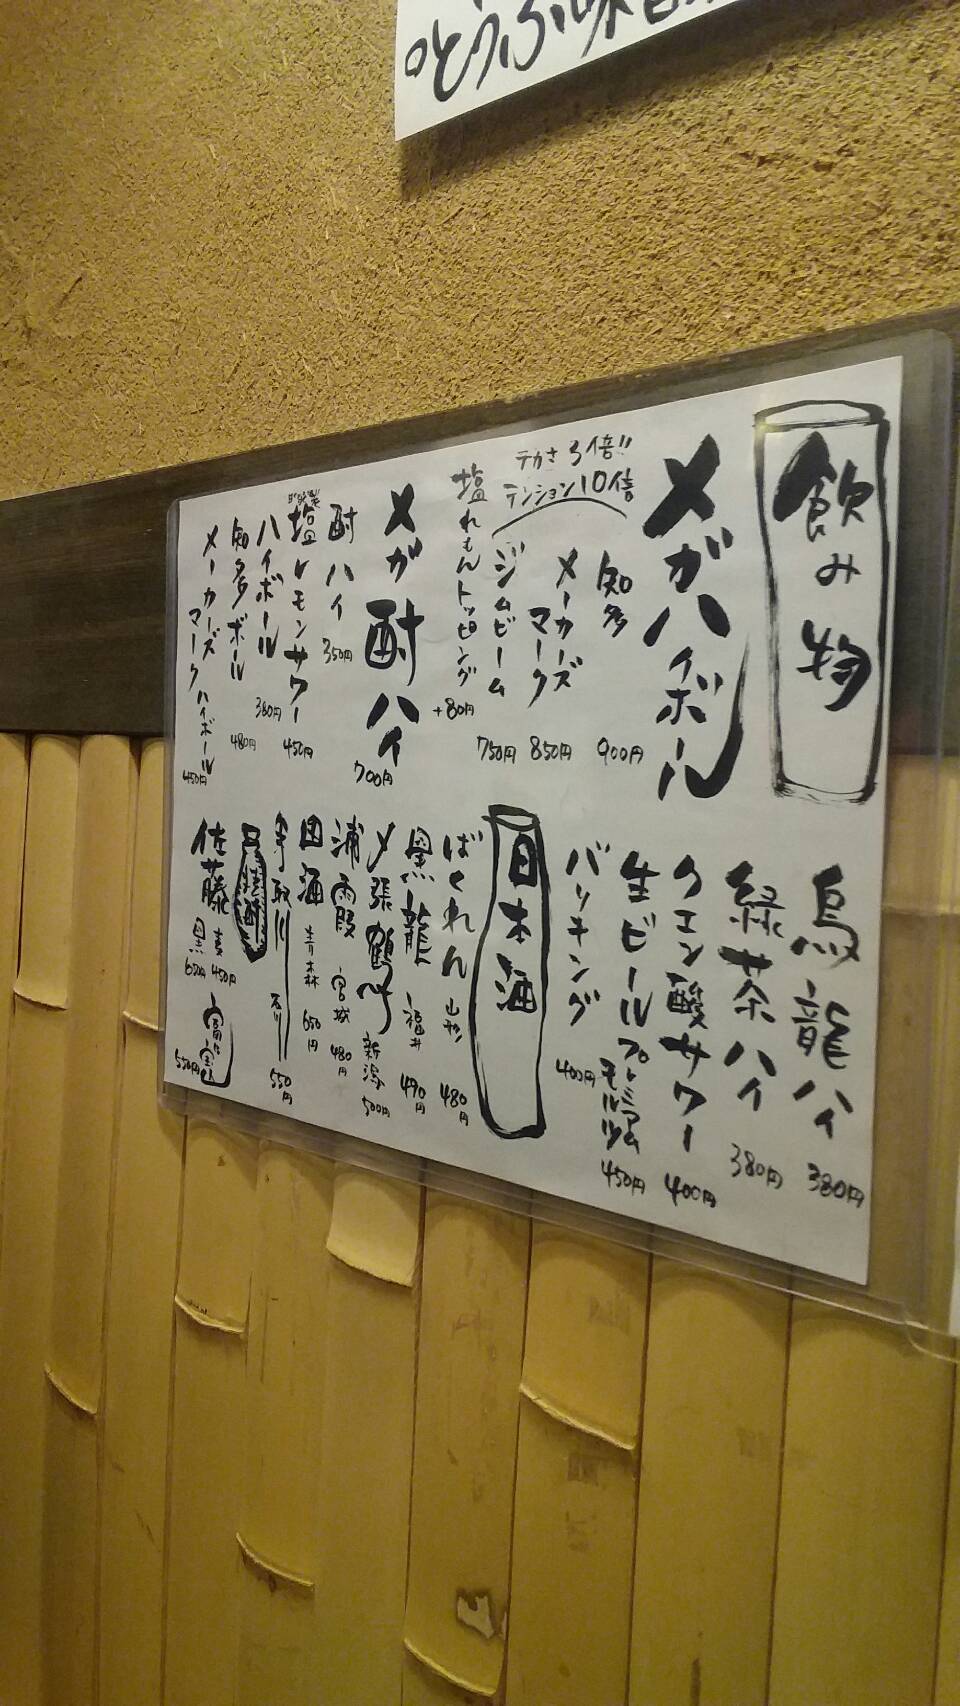 とうふ味
飲み物
メガハイボール
デカさ3倍!!
テンション10倍
知多 900円
メーカーズマーク 850円
ジムビーム 750円
塩れもんトッピング +80円
メガ酎ハイ 700円
酎ハイ 350円
塩レモンサワー 450円
ハイボール 380円
知多ボール 480円
メーカーズマークハイボール 450円
烏龍ハイ 380円
緑茶ハイ 380円
クエン酸サワー 400円
生ビール プレミアムモルツ 450円
バリキング 400円
日本酒
ばくれん 山形 480円
黒龍 福井 490円
〆張鶴 新潟 500円
浦霞 宮城 480円
田酒 青森 650円
手取川 石川 550円
佐藤 麦 450円
黒 650円
富乃宝山 550円